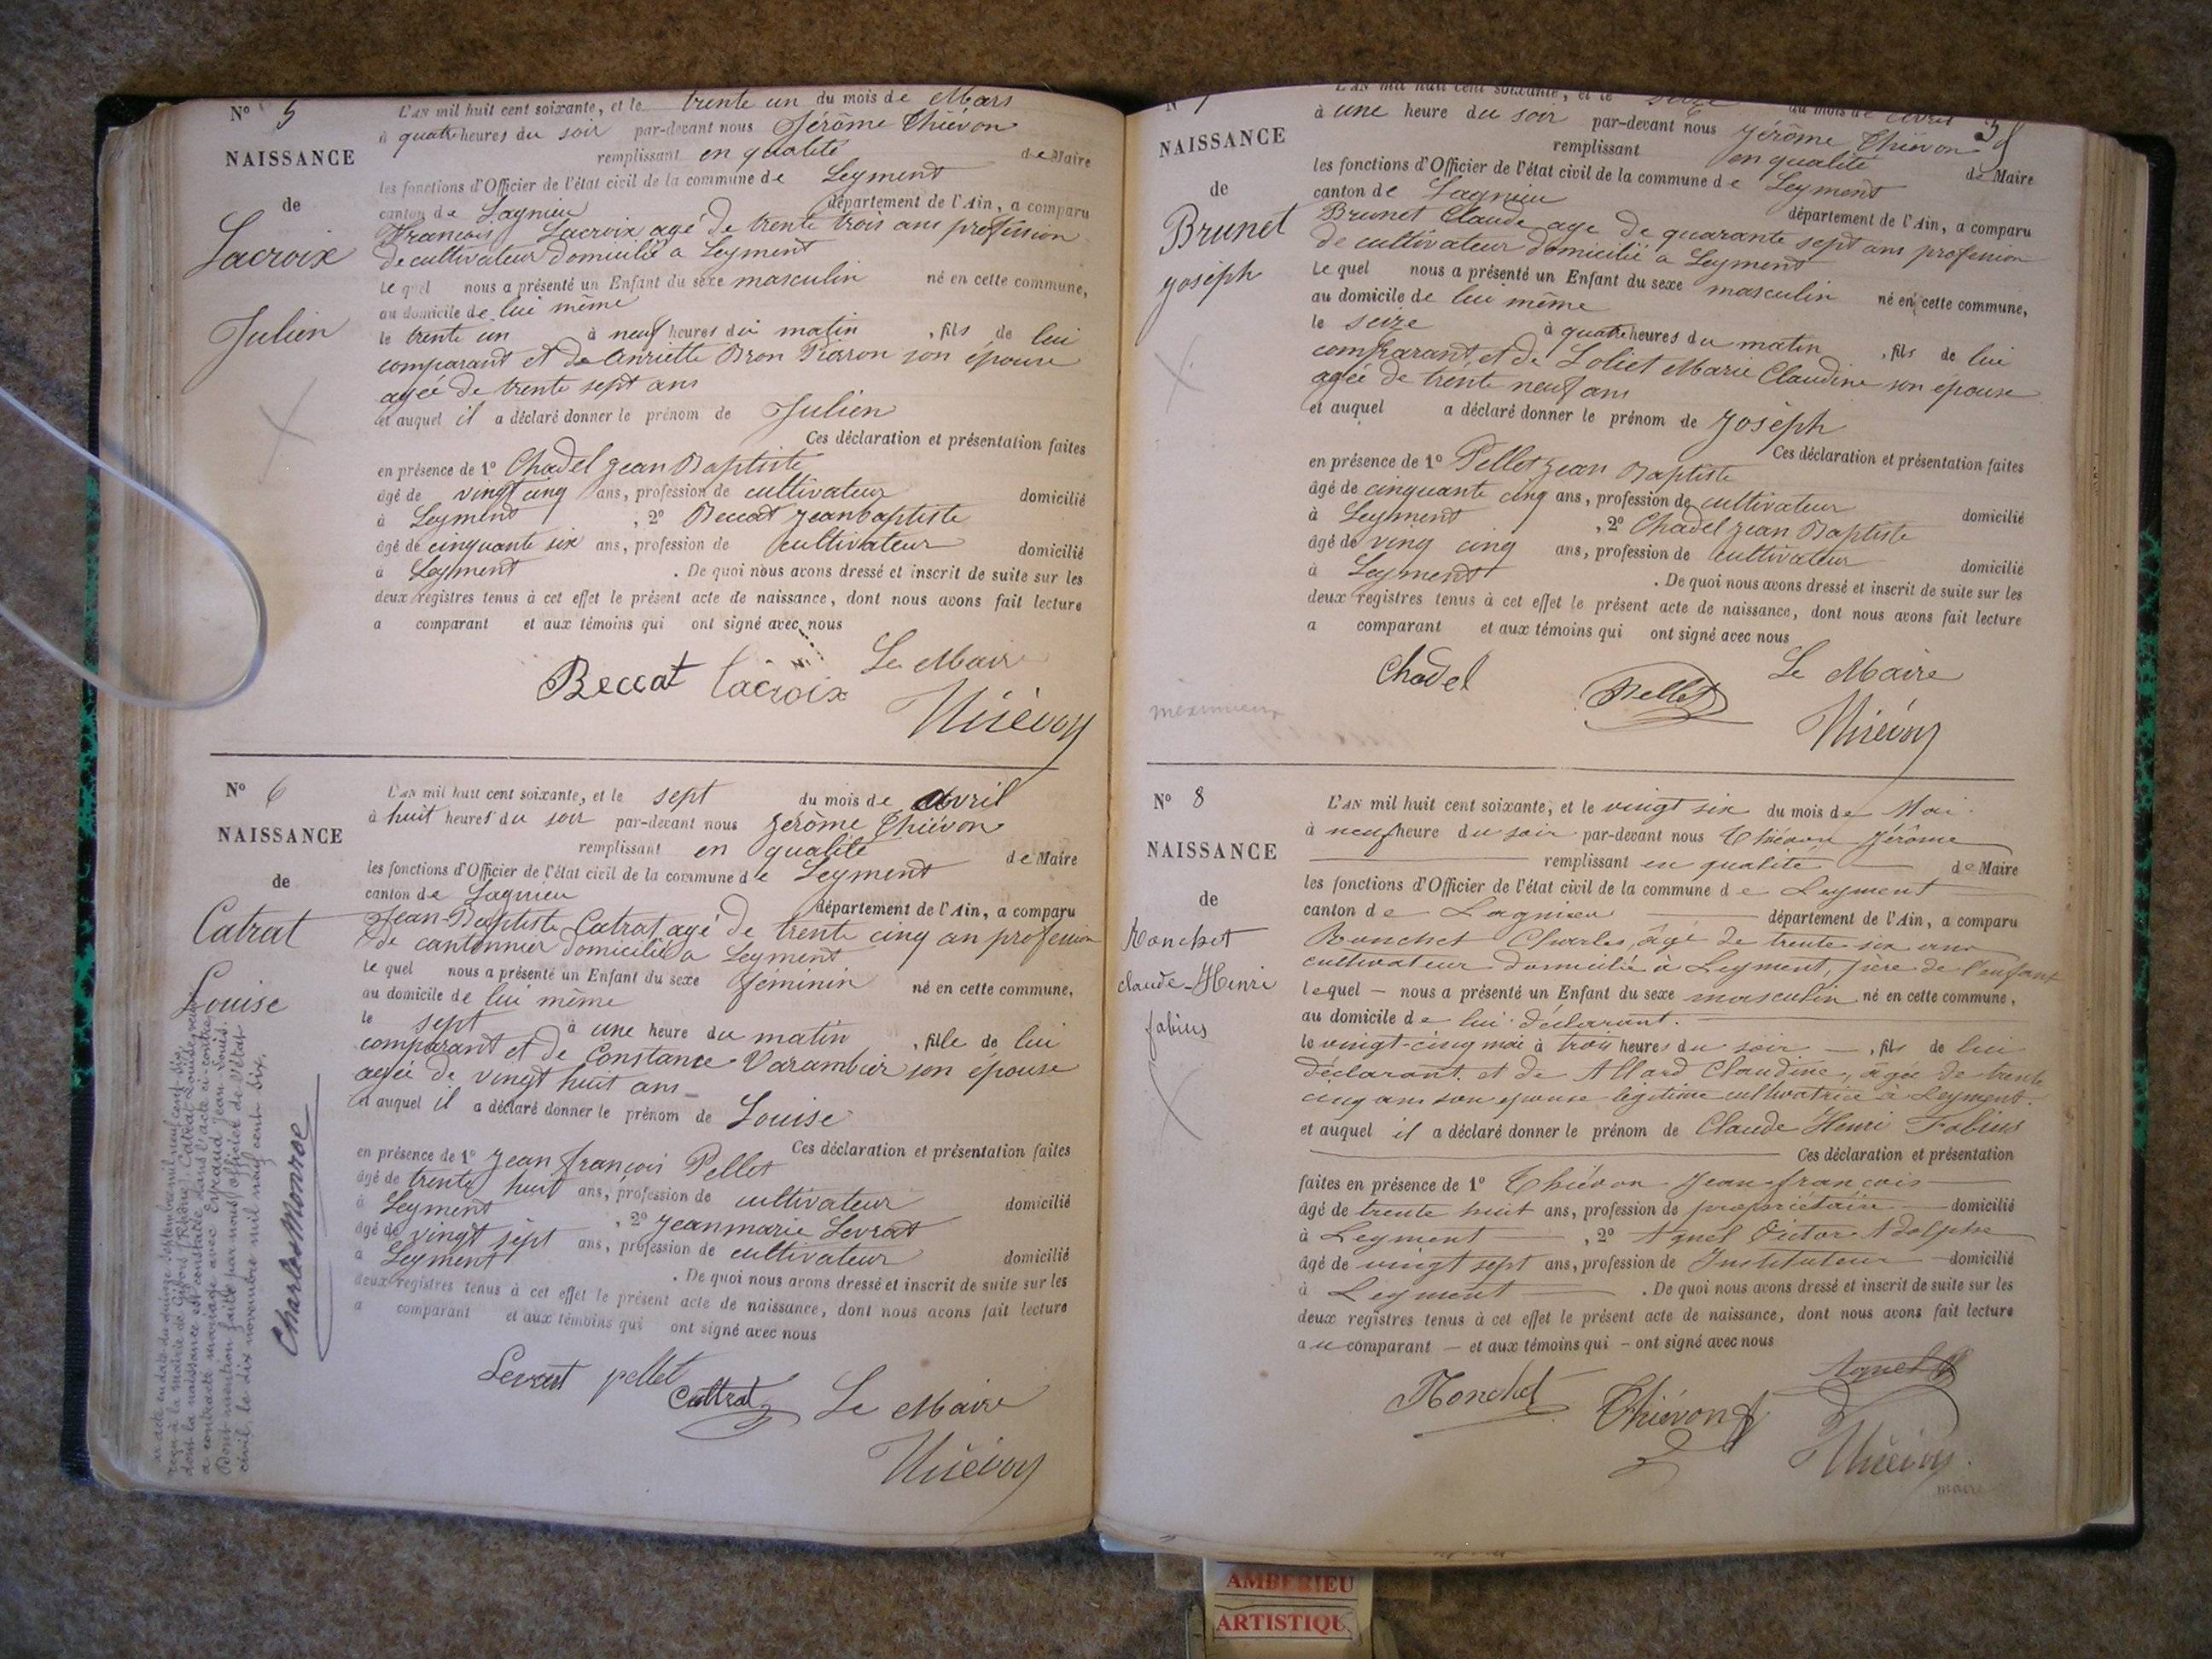 N° 5
NAISSANCE
de
Lacroix
Julien
L'AN mil huit cent soixante, et le trente un du mois de Mars
à quatre heures du soir par-devant nous Jérôme Thiévon
remplissant en qualité de Maire
les fonctions d'Officier de l'état civil de la commune de Leyment
canton de Lagnieu département de l'Ain, a comparu
François Lacroix agé de trente trois ans profession
de cultivateur domicilié a Leyment
le quel nous a présenté un Enfant du sexe masculin né en cette commune,
au domicile de lui même
le trente un à neuf heures du matin , fils de lui
comparant et de Anriette Bron Piaron son épouse
agée de trente sept ans
et auquel il a déclaré donner le prénom de Julien
Ces déclaration et présentation faites
en présence de 1° Chadel Jean Baptiste
âgé de vingt cinq ans, profession de cultivateur domicilié
à Leyment , 2° Beccat Jean baptiste
âgé de cinquante six ans, profession de cultivateur domicilié
à Leyment . De quoi nous avons dressé et inscrit de suite sur les
deux registres tenus à cet effet le présent acte de naissance, dont nous avons fait lecture
a comparant et aux témoins qui ont signé avec nous
Le Maire
Beccat Lacroix
Thiévon
N° 6
NAISSANCE
de
Catrat
Louise
L'AN mil huit cent soixante, et le sept du mois de Avril
à huit heures du soir par-devant nous Jérôme Thiévon
remplissant en qualité de Maire
les fonctions d'Officier de l'état civil de la commune de Leyment
canton de Lagnieu département de l'Ain, a comparu
Jean-Baptiste Catrat agé de trente cinq an profession
de cantonnier domicilié a Leyment
le quel nous a présenté un Enfant du sexe féminin né en cette commune,
au domicile de lui même
le sept à une heure du matin , fille de lui
comparant et de Constance Varambier son épouse
agée de vingt huit ans
et auquel il a déclaré donner le prénom de Louise
Ces déclaration et présentation faites
en présence de 1° Jean françois Pellet
âgé de trente huit ans, profession de cultivateur domicilié
à Leyment , 2° Jean marie Levrat
âgé de vingt sept ans, profession de cultivateur domicilié
à Leyment . De quoi nous avons dressé et inscrit de suite sur les
deux registres tenus à cet effet le présent acte de naissance, dont nous avons fait lecture
a comparant et aux témoins qui ont signé avec nous
Levrat pellet
Cattrat Le Maire
Thiévon
acte en date du quinze Septembre mil neuf cent six,
reçu à la mairie de Givors (Rhône), Catrat Louise,
dont la naissance est constatée dans l'acte ci-contre,
a contracté mariage avec Jean Louis.
Dont mention faite par nous, officier de l'état
civil, le dix novembre mil neuf cent six.
Charles Monroe
N° 7
NAISSANCE
de
Brunet
Joseph
L'AN mil huit cent soixante, et le seize du mois de Avril
à une heure du soir par-devant nous Jérôme Thiévon
remplissant en qualité de Maire
les fonctions d'Officier de l'état civil de la commune de Leyment
canton de Lagnieu département de l'Ain, a comparu
Brunet Claude age de quarante sept ans profession
de cultivateur domicilié a Leyment
le quel nous a présenté un Enfant du sexe masculin né en cette commune,
au domicile de lui même
le seize à quatre heures du matin , fils de lui
comparant et de Loliet Marie Claudine son épouse
agée de trente neuf ans
et auquel a déclaré donner le prénom de Joseph
Ces déclaration et présentation faites
en présence de 1° Pellet Jean Baptiste
âgé de cinquante cinq ans, profession de cultivateur domicilié
à Leyment , 2° Chadel Jean Baptiste
âgé de ving cinq ans, profession de cultivateur domicilié
à Leyment . De quoi nous avons dressé et inscrit de suite sur les
deux registres tenus à cet effet le présent acte de naissance, dont nous avons fait lecture
a comparant et aux témoins qui ont signé avec nous
Chadel Pellet Le Maire
Thiévon
N° 8
NAISSANCE
de
Ronchet
Claude-Henri
fabius
L'AN mil huit cent soixante, et le vingt six du mois de Mai
à neuf heure du soir par-devant nous Thiévon Jérôme
remplissant en qualité de Maire
les fonctions d'Officier de l'état civil de la commune de Leyment
canton de Lagnieu département de l'Ain, a comparu
Ronchet Charles, âgé de trente six ans
cultivateur domicilié à Leyment, père de l'enfant
lequel nous a présenté un Enfant du sexe masculin né en cette commune,
au domicile de lui déclarant.
le vingt-cinq mai à trois heures du soir , fils de lui
déclarant. et de Allard Claudine, âgée de trente
cinq ans son épouse légitime cultivatrice à Leyment.
et auquel il a déclaré donner le prénom de Claude Henri Fabius
Ces déclaration et présentation
faites en présence de 1° Thiévon Jean françois
âgé de trente huit ans, profession de propriétaire domicilié
à Leyment , 2° Agnel Victor Adolphe
âgé de vingt sept ans, profession de Instituteur domicilié
à Leyment . De quoi nous avons dressé et inscrit de suite sur les
deux registres tenus à cet effet le présent acte de naissance, dont nous avons fait lecture
au comparant et aux témoins qui ont signé avec nous
Ronchet Thiévon Agnel
Thiévon
maire
AMBERIEU
ARTISTIQU